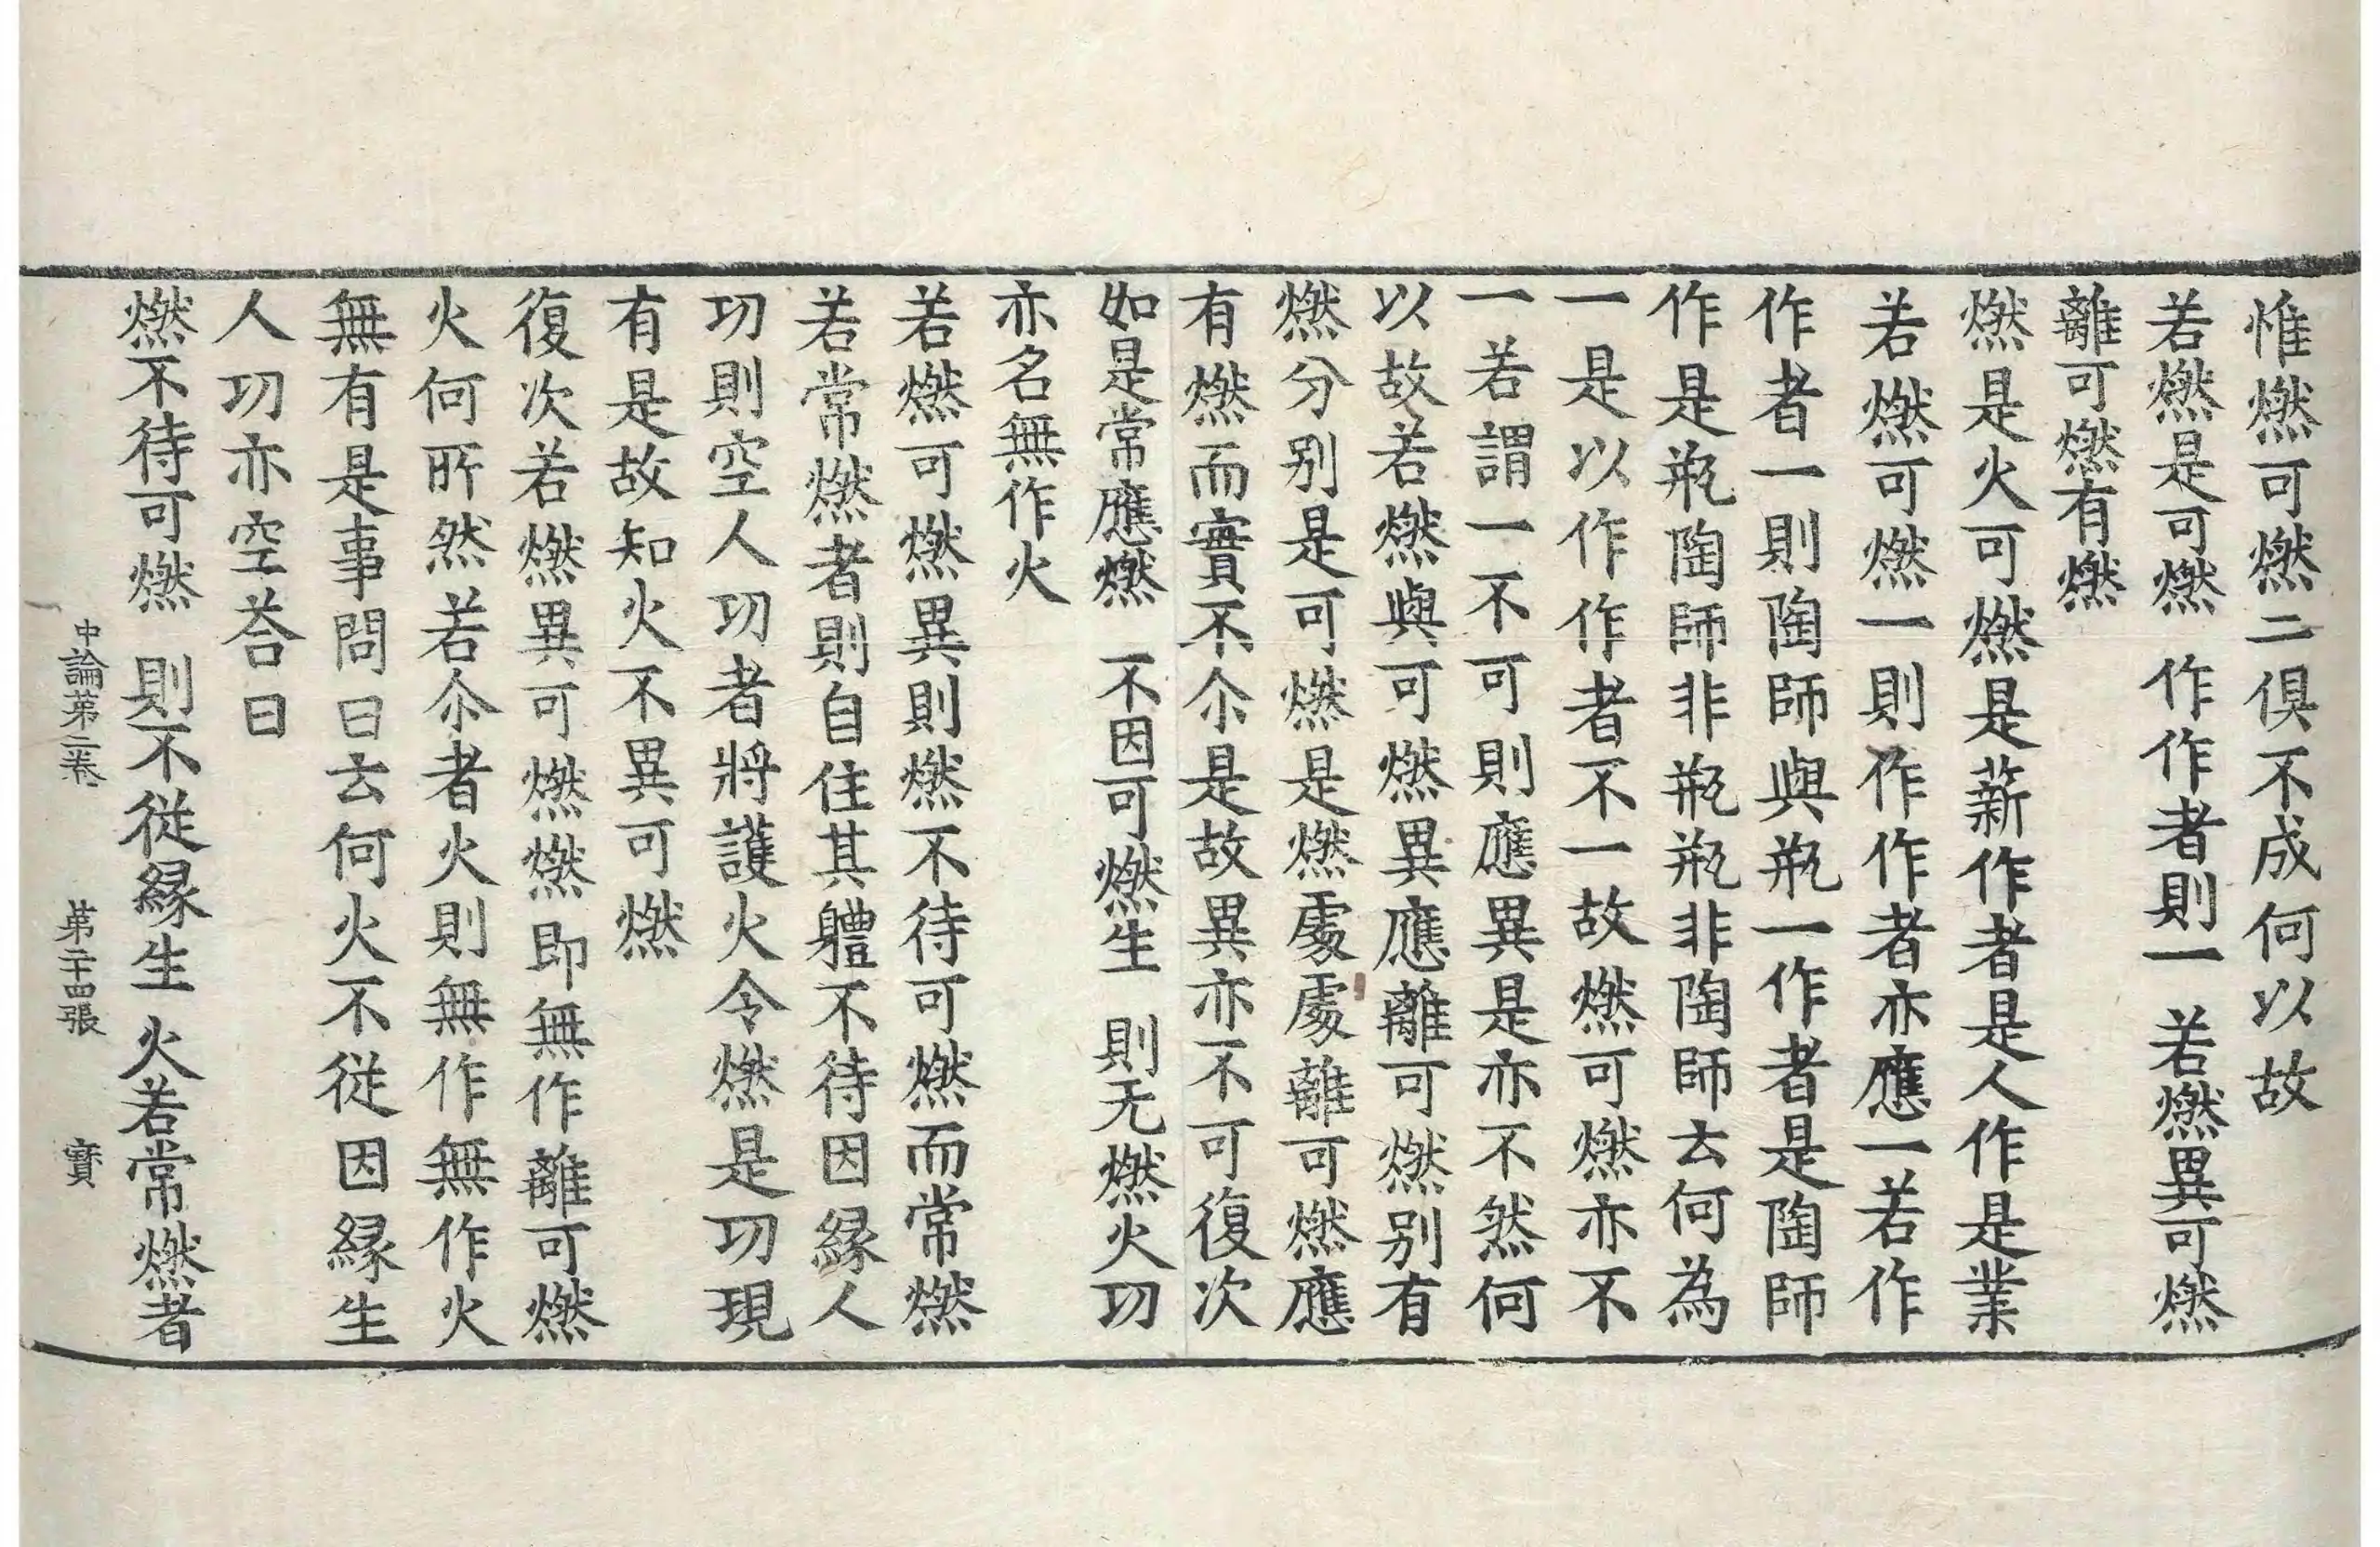 惟燃可燃二俱不成何以故
若燃是可燃　作作者則一　若燃異可燃
離可燃有燃
燃是火可燃是薪作者是人作是業
若燃可燃一則作作者亦應一若作
作者一則陶師與瓶一作者是陶師
作是瓶陶師非瓶瓶非陶師云何為
一是以作作者不一故燃可燃亦不
一若謂一不可則應異是亦不然何
以故若燃與可燃異應離可燃别有
燃分别是可燃是燃處處離可燃應
有燃而實不尒是故異亦不可復次
如是常應燃　不因可燃生　則无燃火功
亦名無作火
若燃可燃異則燃不待可燃而常燃
若常燃者則自住其體不待因緣人
功則空人功者將護火令燃是功現
有是故知火不異可燃
復次若燃異可燃燃即無作離可燃
火何所然若尒者火則無作無作火
無有是事問曰云何火不從因緣生
人功亦空荅曰
燃不待可燃　則不從緣生　火若常燃者
中論第二卷　第二十四張　寶